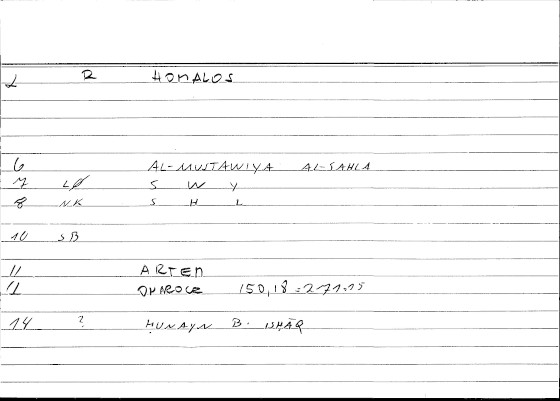 2 R HOMALOS
6 AL-MUSTAWIYA AL-SAHLA
7 LØ S W Y
8 NK S H L
10 SB
11 ARTEM
12 150,18 = 271.15
14 ? ḤUNAYN B. ISḤĀQ